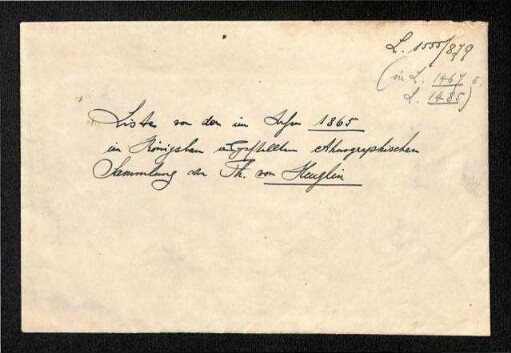 L. 1555/879
(in L. 1467 u.
L. 1485)
Listen von der im Jahre 1865
im Königsbau ethnographischen
Sammlung des Th. von Heuglin